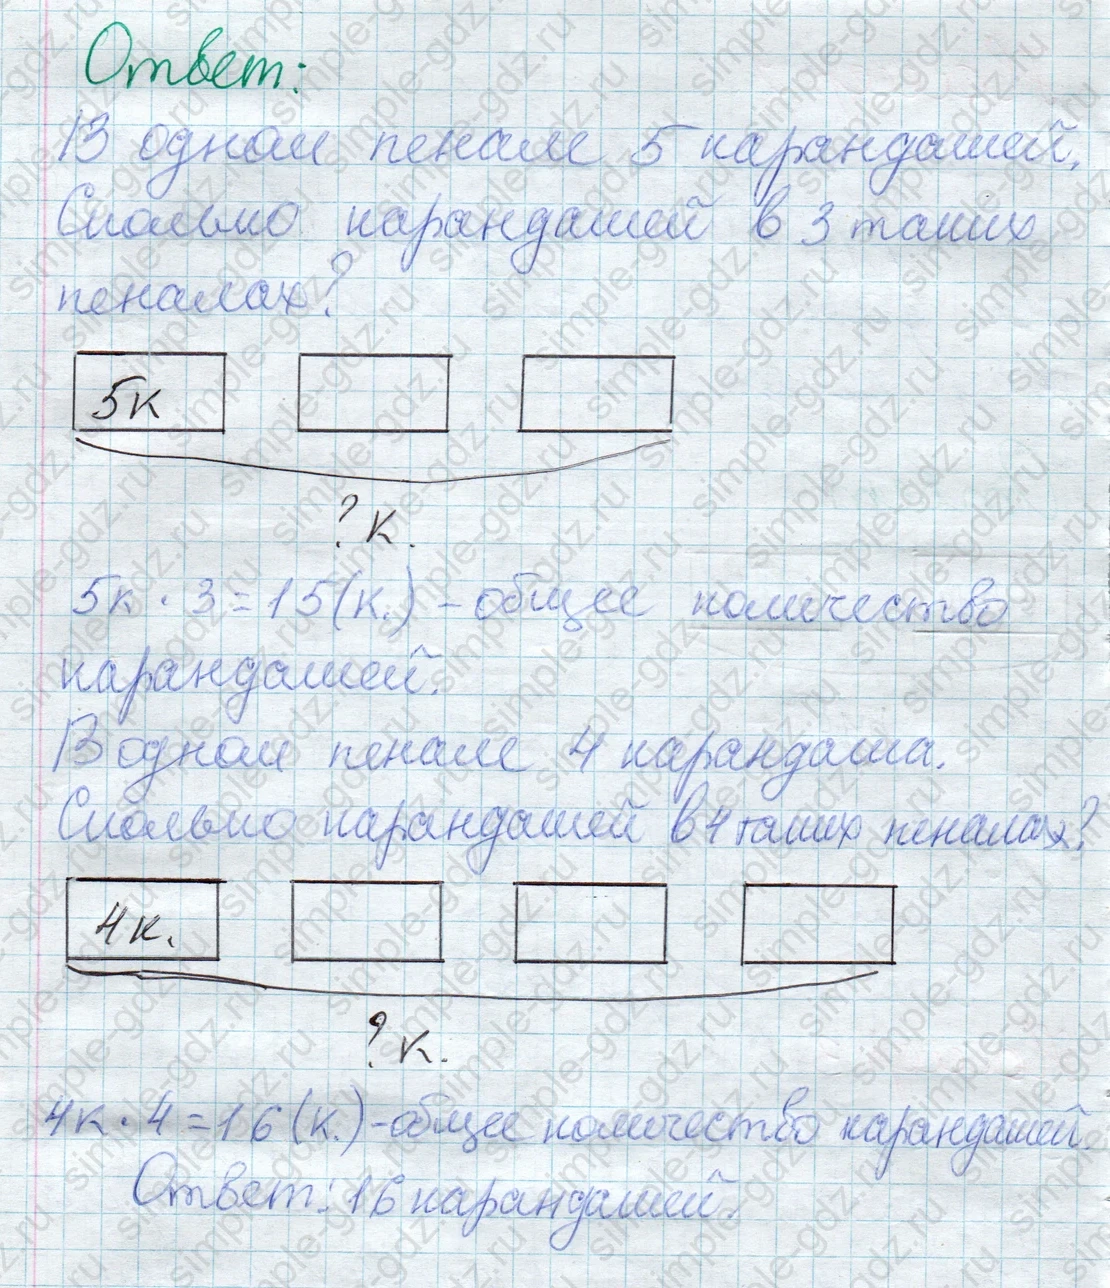 Ответ:
В одном пенале 5 карандашей.
Сколько карандашей в 3 таких
пеналах?
5к
? к.
5к · 3 = 15 (к.) - общее количество
карандашей.
В одном пенале 4 карандаша.
Сколько карандашей в 4 таких пеналах?
4к.
? к.
4к · 4 = 16 (к.) - общее количество карандашей.
Ответ: 16 карандашей.
simple-gdz.ru